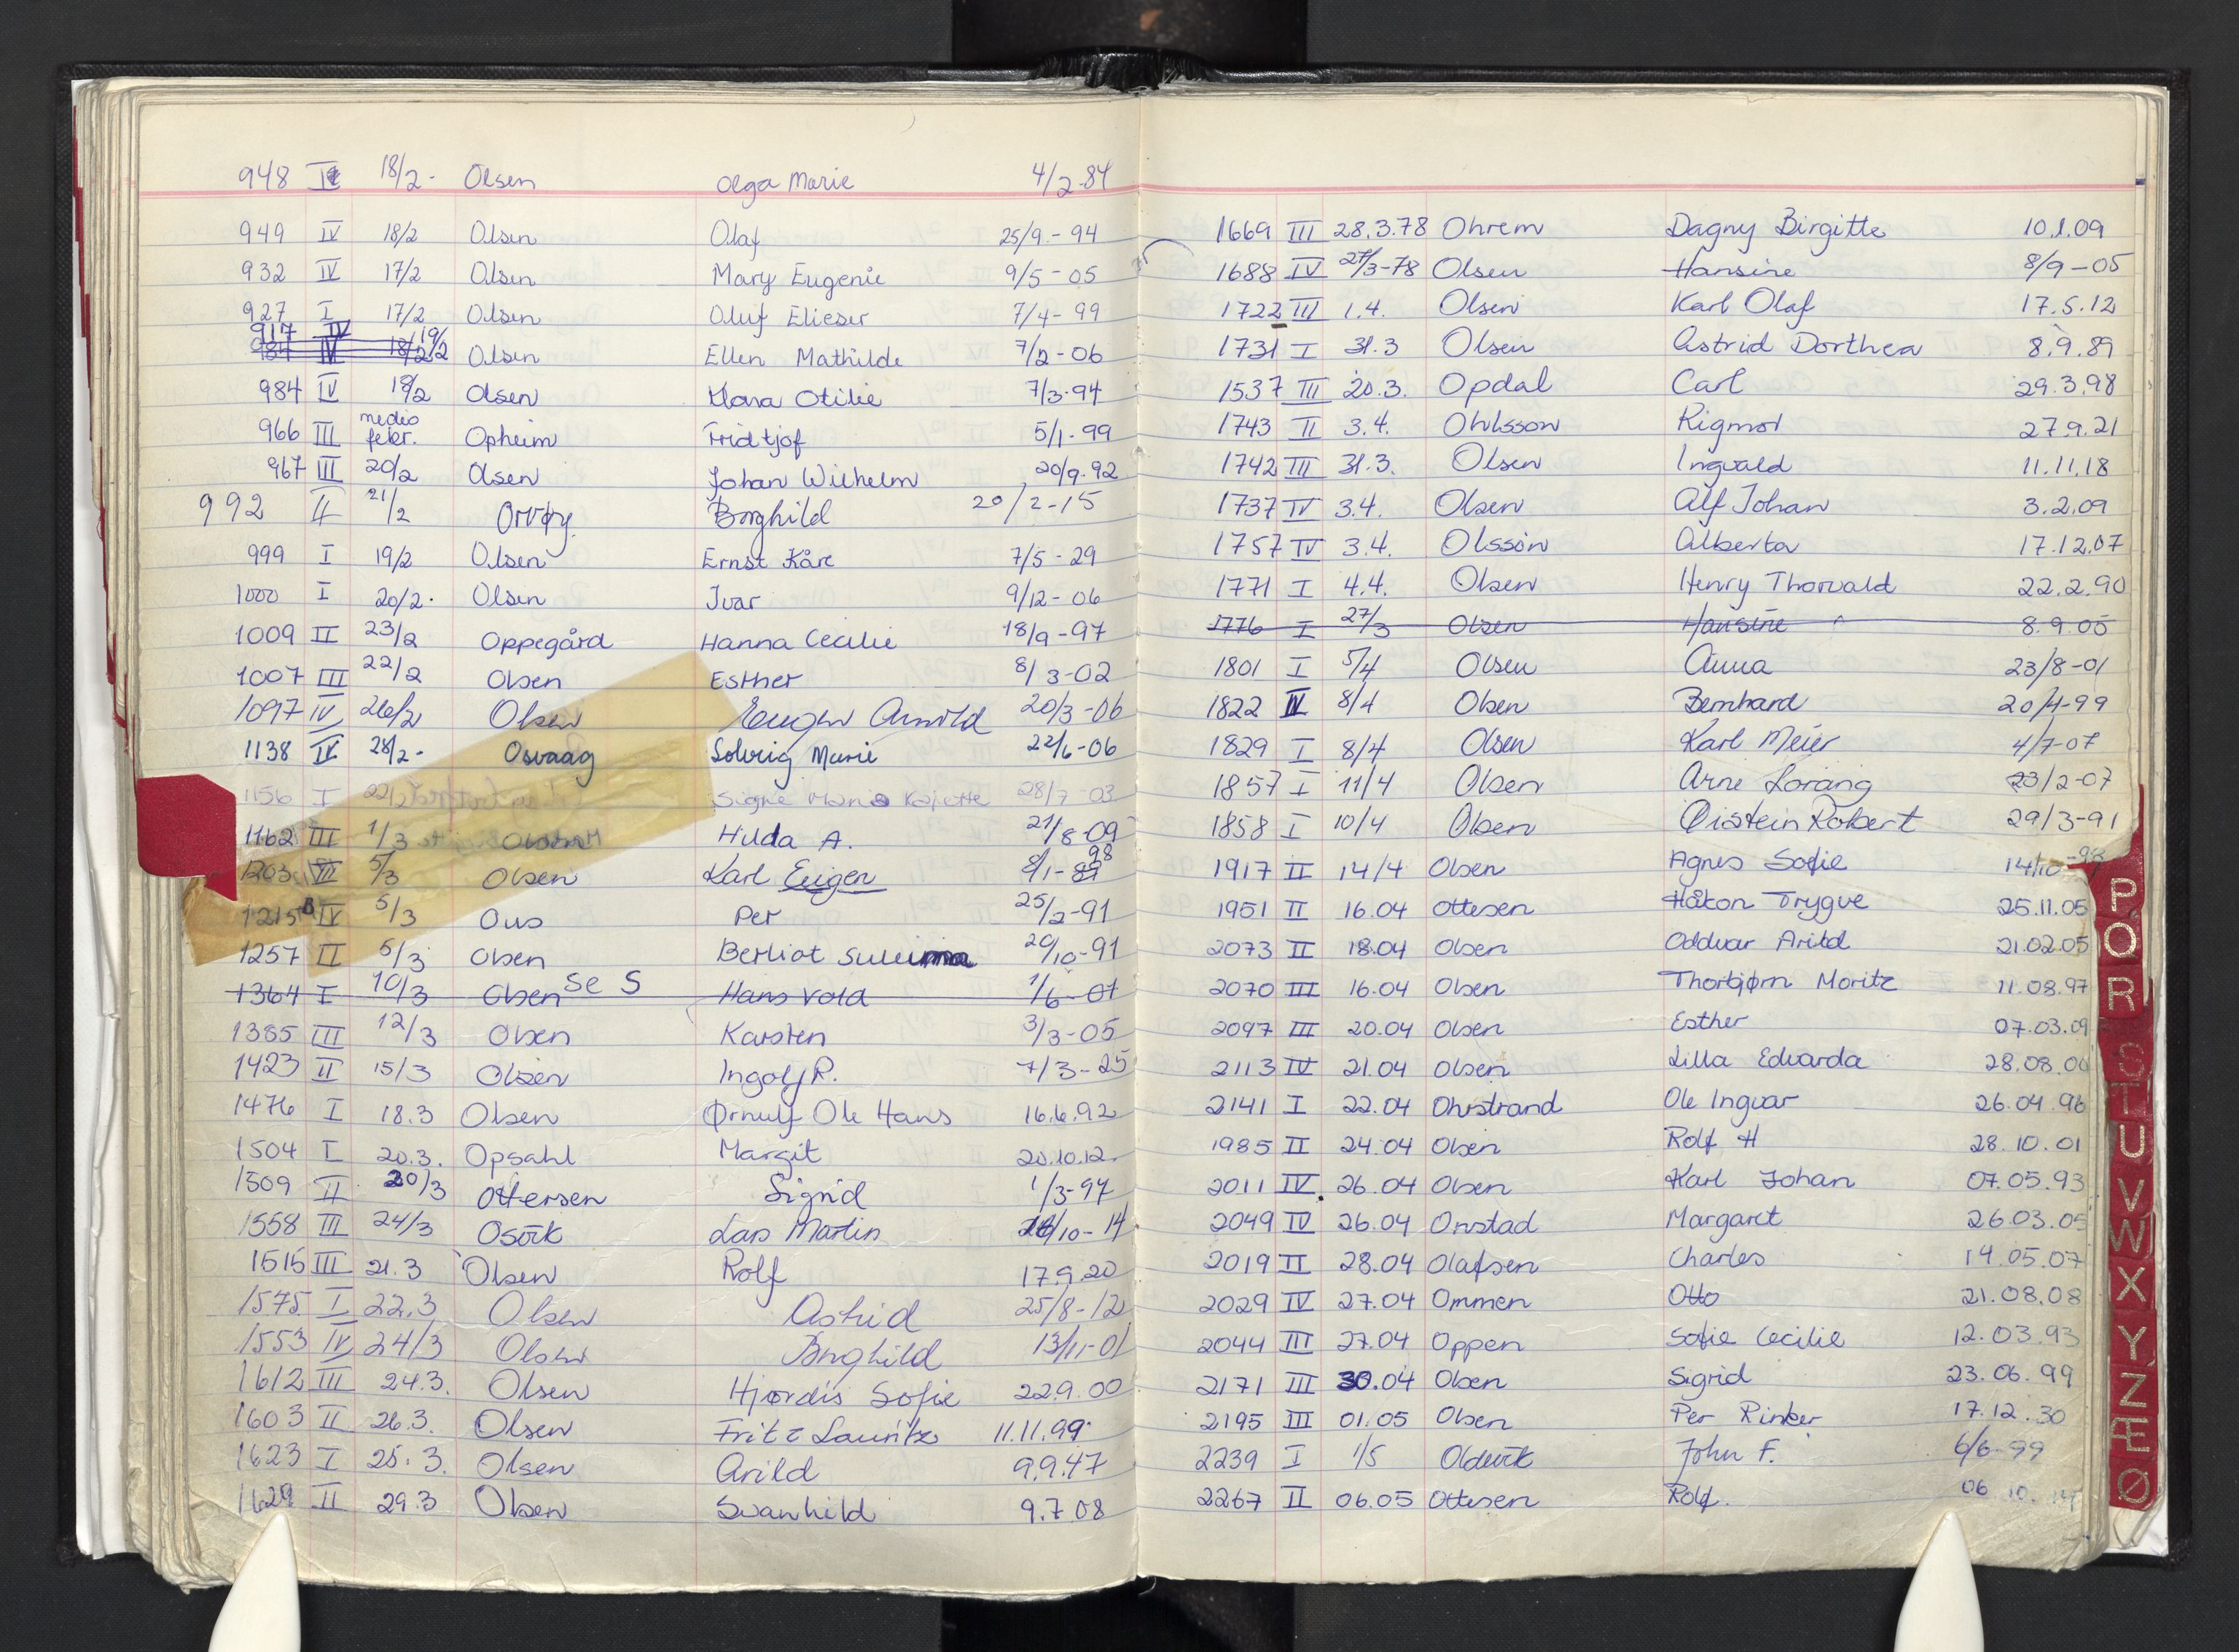 948 I 18/2- Olsen Olga Marie 4/2-84
949 IV 18/2 Olsen Olaf 25/9-94
932 IV 17/2 Olsen Mary Eugenie 9/5-05
927 I 17/2 Olsen Oluf Elieser 7/4-99
917 IV 19/2
984 IV 18/2 Olsen Ellen Mathilde 7/2-06
984 IV 18/2 Olsen Klara Otilie 7/3-94
966 III medio febr. Opheim Fridtjof 5/1-99
967 III 20/2 Olsen Johan Wilhelm 20/9.92
992 II 21/2 Orvøy Borghild 20/2-15
999 I 19/2 Olsen Ernst Kåre 7/5-29
1000 I 20/2. Olsen Ivar 9/12-06
1009 II 23/2 Oppegård Hanna Cecilie 18/9-97
1007 III 22/2 Olsen Esther 8/3-02
1097 IV 26/2 Olsen Eugen Arnold 20/3-06
1138 IV 28/2- Osvaag Solveig Marie 22/6-06
1156 I 22/2 Signe Marie 28/7 03
1162 III 1/3 Hulda A. 21/8-09
1203 III 5/3 Olsen Karl Eugen 8/1-89 98
1215 IV 5/3 Ous Per 25/2-91
1257 II 5/3 Olsen Berliot 20/10-91
1364 I 10/3 Olsen se S Hans Vold 1/6-07
1385 III 12/3 Olsen Karsten 3/3-05
1423 II 15/3 Olsen Ingolf R. 7/3-25
1476 I 18.3 Olsen Ørnulf Ole Hans 16.6.92
1504 I 20.3. Opsahl Margit 20.10.12.
1509 II 20/3 Ottersen Sigrid 1/3-97
1558 III 24/3 Osvik Lars Martin /10-14
1515 III 21.3 Olsen Rolf 17.9.20
1575 I 22.3 Olsen Astrid 25/8-12
1553 IV 24/3 Olsen Borghild 13/11-01
1612 III 24.3. Olsen Hjørdis Sofie 22.9.00
1603 II 26.3. Olsen Fritz Lauritz 11.11.99
1623 I 25.3. Olsen Arild 9.9.47
1629 II 29.3 Olsen Svanhild 9.7.08
1669 III 28.3.78 Ohrem Dagny Birgitte 10.1.09
1688 IV 27/3-78 Olsen Hansine 8/9-05
1722 III 1.4. Olsen Karl Olaf 17.5.12
1731 I 31.3 Olsen Astrid Dorthea 8.9.89
1537 III 20.3. Opdal Carl 29.3.98
1743 II 3.4. Ohlsson Rigmor 27.9.21
1742 III 31.3. Olsen Ingvald 11.11.18
1737 IV 3.4. Olsen Alf Johan 3.2.09
1757 IV 3.4. Olsson Alberta 17.12.07
1771 I 4.4. Olsen Henry Thorvald 22.2.90
1776 I 27/3 Olsen Hansine 8.9.05
1801 I 5/4 Olsen Anna 23/8-01
1822 IV 8/4 Olsen Bernhard 20/4-99
1829 I 8/4 Olsen Karl Meier 4/7-07
1857 I 11/4 Olsen Arne Loräng 23/2-07
1858 I 10/4 Olsen Øistein Robert 29/3-91
1917 II 14/4 Olsen Agnes Sofie 14/10-98
1951 II 16.04 Ottesen Håkon Trygve 25.11.05
2073 II 18.04 Olsen Oddvar Arild 21.02.05
2070 III 16.04 Olsen Thorbjørn Moritz 11.08.97
2097 III 20.04 Olsen Esther 07.03.09
2113 IV 21.04 Olsen Lilla Edvarda 28.08.00
2141 I 22.04 Ohrstrand Ole Ingvar 26.04.96
1985 II 24.04 Olsen Rolf H 28.10.01
2011 IV. 26.04 Olsen Karl Johan 07.05.93
2049 IV 26.04 Onstad Margaret 26.03.05
2019 II 28.04 Olafsen Charles 14.05.07
2029 IV 27.04 Ommen Otto 21.08.08
2044 III 27.04 Oppen Sofie Cecilie 12.03.93
2171 III 30.04 Olsen Sigrid 23.06.99
2195 III 01.05 Olsen Per Rinker 17.12.30
2239 I 1/5 Oldervik John F. 6/6-99
2267 II 06.05 Ottesen Rolf. 06 10.14
P
O
R
S
T
U
V
W
X
Y
Z
Æ
Ø